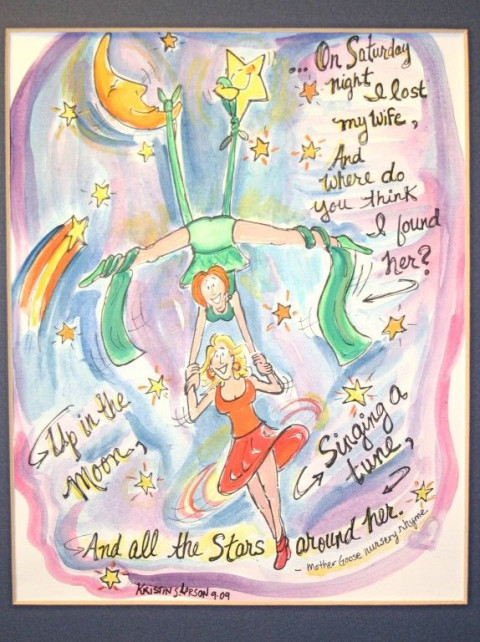 ... On Saturday
night I lost
my wife,
And
where do
you think
I found
her?
Up in the
Moon,
Singing a
tune,
And all the Stars around her.
- Mother Goose nursery rhyme
KRISTIN S. LARSON 9.09